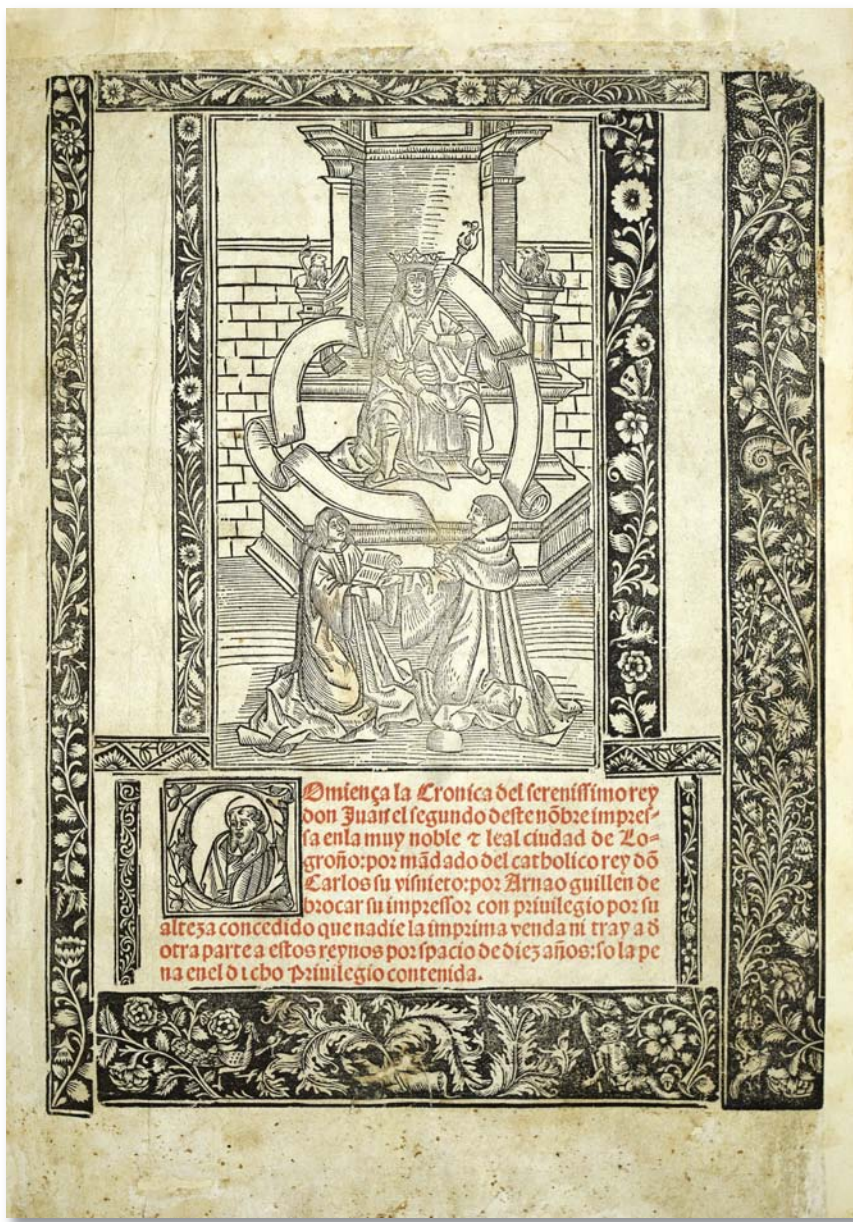 Comiença la Cronica del serenissimo rey
don Juan el segundo deste nõbre impres-
sa enla muy noble ⁊ leal ciudad de Lo-
groño: por mãdado del catholico rey dõ
Carlos su visnieto: por Arnao guillen de
brocar su impressor con priuilegio por su
alteza concedido que nadie la imprima venda ni traya đ
otra parte a estos reynos por spacio de diez años: so la pe
na enel dicho Priuilegio contenida.